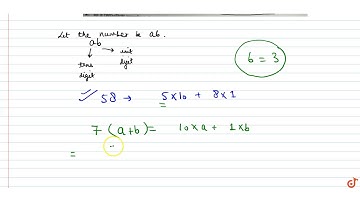 Let the number be ab.
ab
tens digit
unit digit
6 = 3
58 → 5×10 + 8×1
7 (a+b) = 10×a + 1×b
=